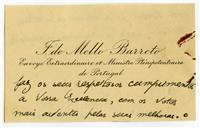 F. de Mello Barreto
Envoyé Extraordinaire et Ministre Plénipotentiaire
de Portugal
faz os seus respeitosos cumprimentos
a Vossa Excelencia, com os votos
mais ardentes pelas suas melhoras.